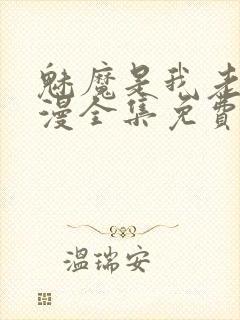 魅魔是我老
漫全集免费
温瑞安